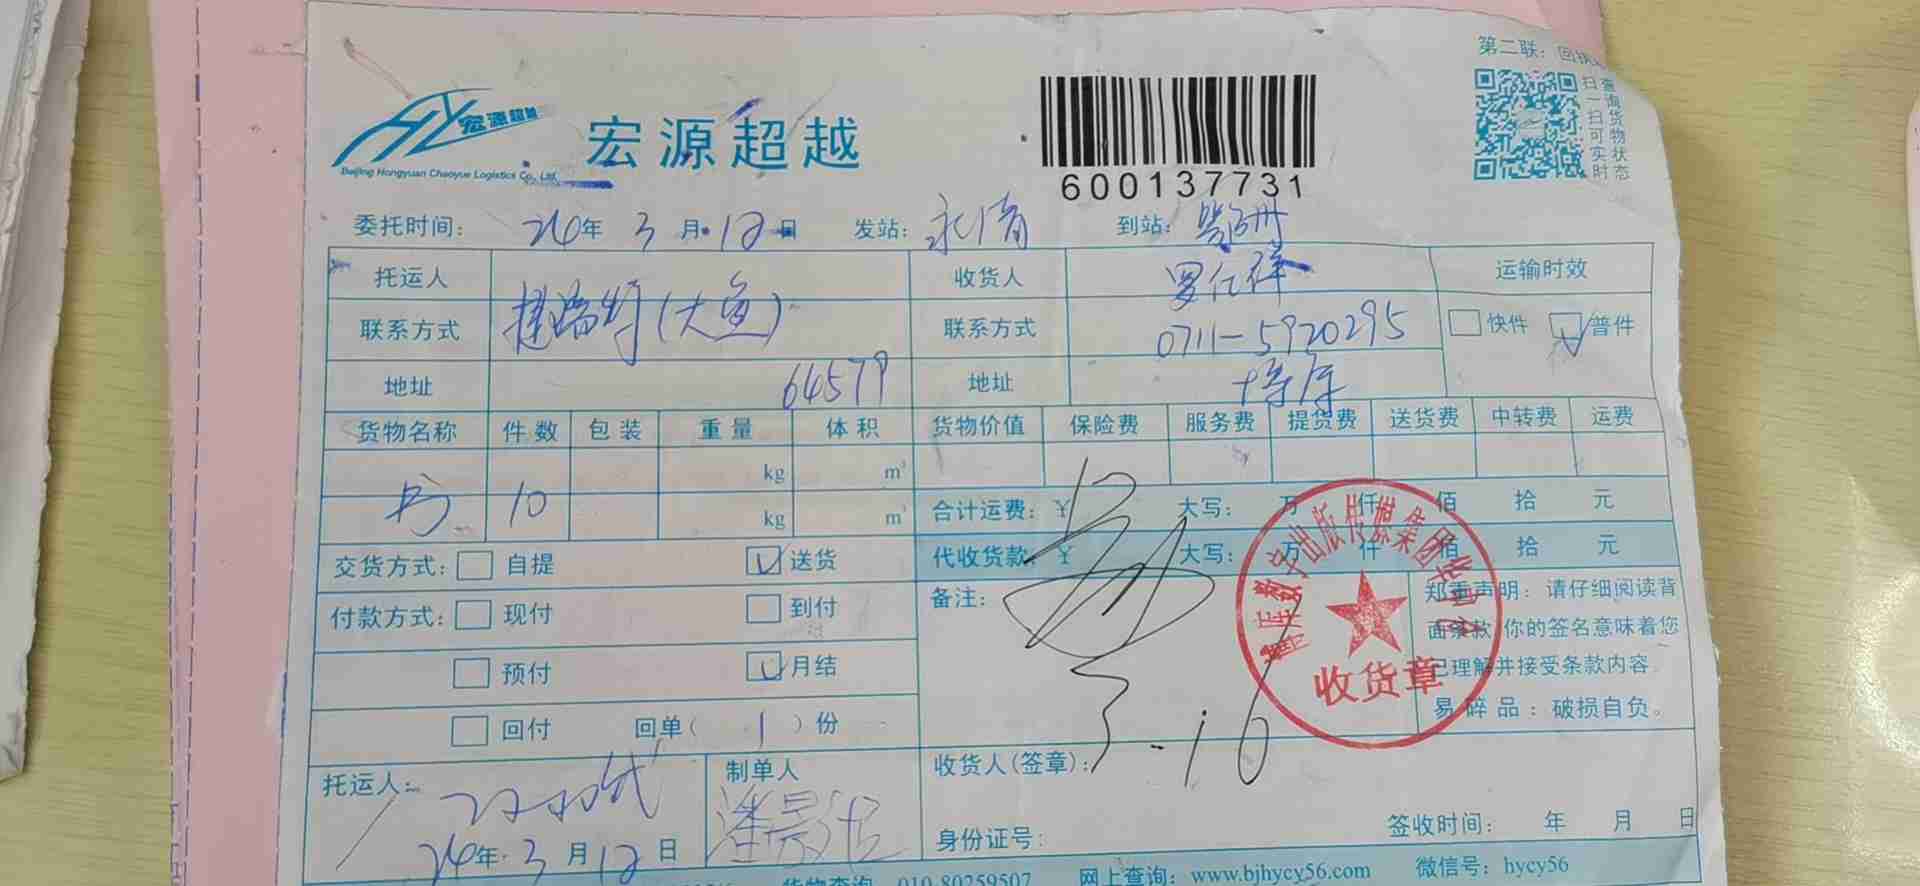 第二联：回执
扫一扫可实时
查询货物状态
宏源超越
Beijing Hongyuan Chaoyue Logistics Co., Ltd.
宏源超越
600137731
委托时间： 24年 3月12日 发站： 永清 到站： 鄂州
托运人 收货人 罗仁祥 运输时效
联系方式 捷瑞特(大鱼) 联系方式 0711-5920295 快件 普件
地址 64579 地址
货物名称 件数 包装 重量 体积 货物价值 保险费 服务费 提货费 送货费 中转费 运费
kg m³
书 10 kg m³
合计运费：￥ 大写： 万 仟 佰 拾 元
代收货款：￥ 大写： 万 仟 佰 拾 元
交货方式： 自提 送货
付款方式： 现付 到付
预付 月结
回付 回单（ 1 ）份
备注：
3-16
郑重声明：请仔细阅读背
面条款，你的签名意味着您
已理解并接受条款内容
易碎品：破损自负。
数字出版传媒集团
收货章
托运人：
24年3月12日
制单人
收货人(签章)：
身份证号：
签收时间： 年 月 日
货物查询 010-80259507 网上查询：www.bjhycy56.com 微信号：hycy56